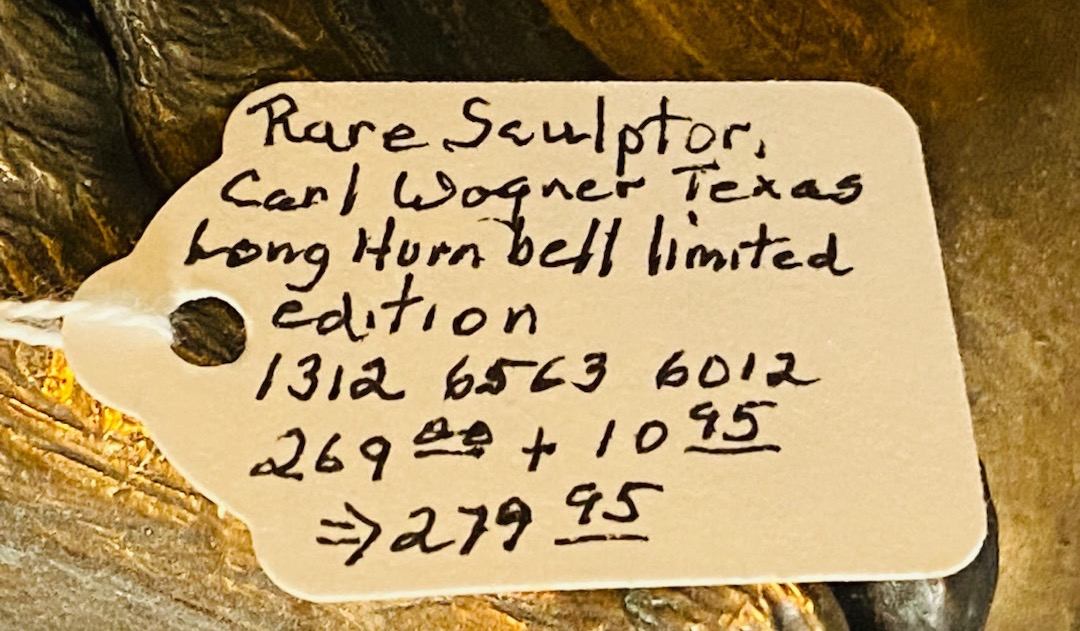 Rare Sculptor,
Carl Wagner Texas
Long Horn bell limited
edition
1312 6563 6012
269 00 + 10 95
⇒ 279 95